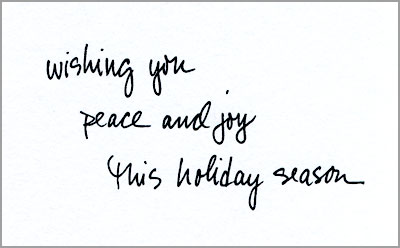 wishing you
peace and joy
this holiday season